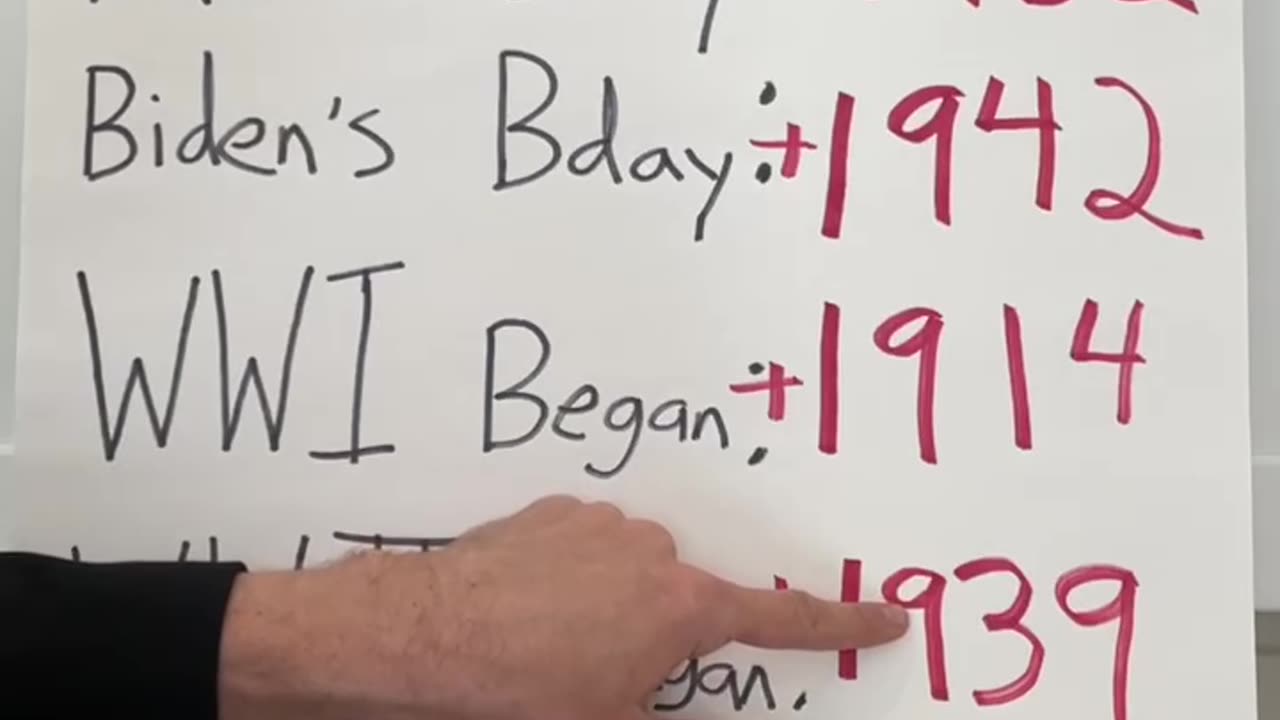 Biden's Bday: +1942
WWI Began: +1914
1939